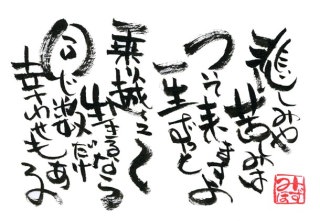 悲しみや
苦しみは
ついて来ますよ
一生ずっと
乗越えて
生きるなら
同じ数だけ
幸わせもある